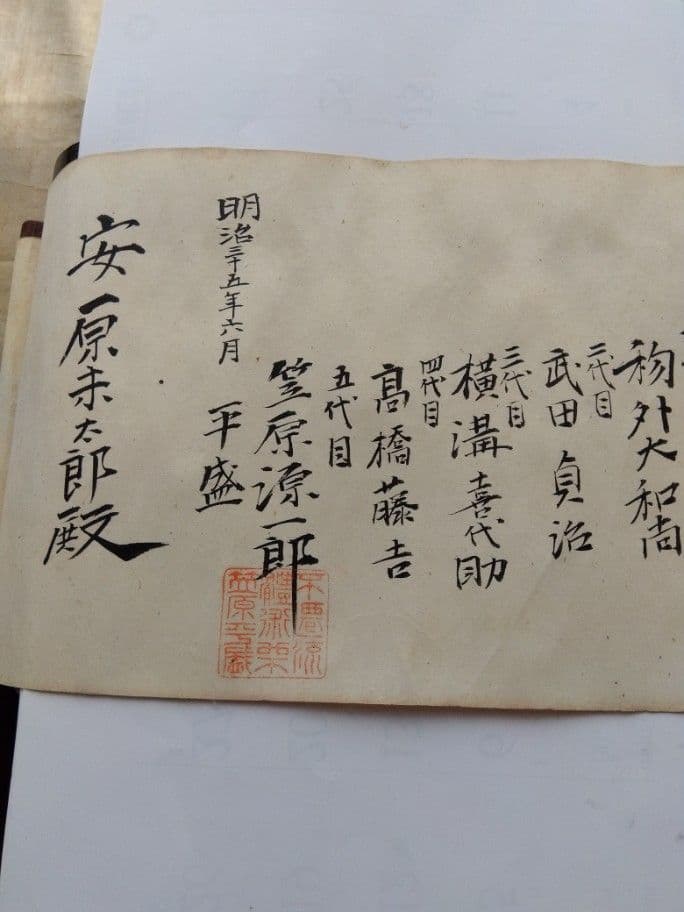 物外大和尚
二代目
武田貞治
三代目
横溝喜代助
四代目
髙橋藤吉
五代目
笠原源一郎
平盛
明治三十五年六月
安原未太郎殿
不遷流